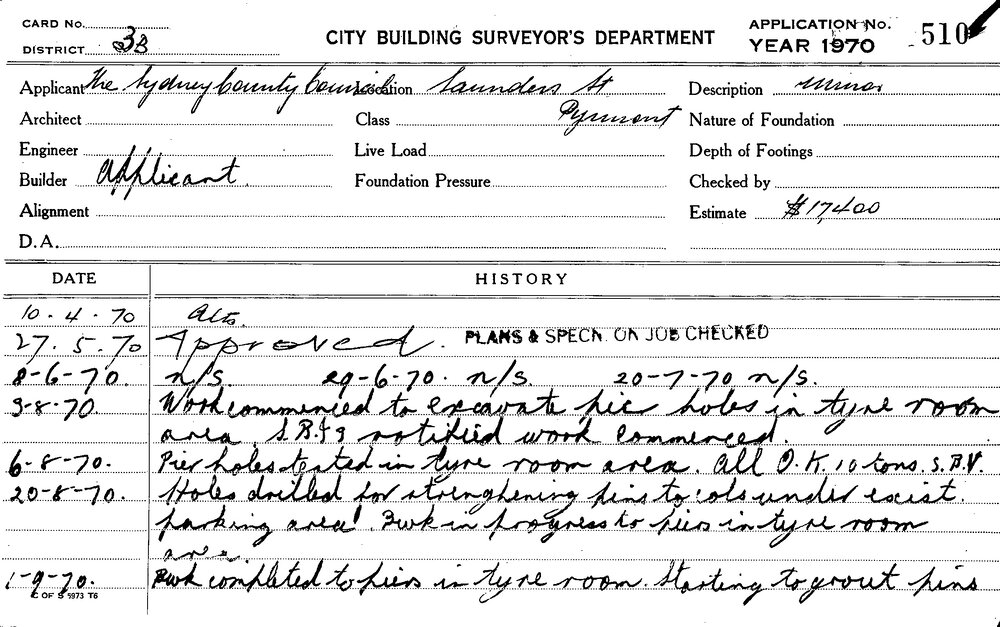 CARD No.
DISTRICT 3B
CITY BUILDING SURVEYOR'S DEPARTMENT
APPLICATION No.
YEAR 1970
510
Applicant The Sydney County Council Location Saunders St Description minor
Architect Class Pyrmont Nature of Foundation
Engineer Live Load Depth of Footings
Builder Applicant. Foundation Pressure Checked by
Alignment Estimate $17,400
D.A.
DATE HISTORY
10.4.70 Alts.
27.5.70 Approved. PLANS & SPECN. ON JOB CHECKED
8-6-70. n/S. 29-6-70. n/S. 20-7-70 n/S.
3-8-70. Work commenced to excavate pier holes in tyre room
area. notified work commenced.
6-8-70. Pier holes tested in tyre room area. All O.K. 10 tons. S.B.V.
20-8-70. Holes drilled for strenghening pins to cols under exist.
parking area. Bwk in progress to piers in tyre room
area.
1-9-70. Bwk completed to piers in tyre room. Starting to grout pins
C OF S 5973 T6